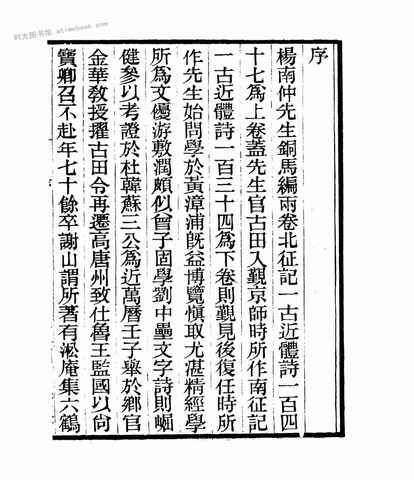 时光图书馆 atimebook.com
序
楊南仲先生銅馬編兩卷北征記一古近體詩一百四
十七爲上卷蓋先生官古田入覲京師時所作南征記
一古近體詩一百三十四爲下卷則覲見後復任時所
作先生始問學於黃漳浦旣益博覽愼取尤湛精經學
所爲文優游敷潤頗似曾子固學劉中壘文字詩則崛
健參以考證於杜韓蘇三公爲近萬曆壬子舉於鄉官
金華敎授擢古田令再遷高唐州致仕魯王監國以尙
寶卿召不赴年七十餘卒謝山謂所著有淞庵集六鶴